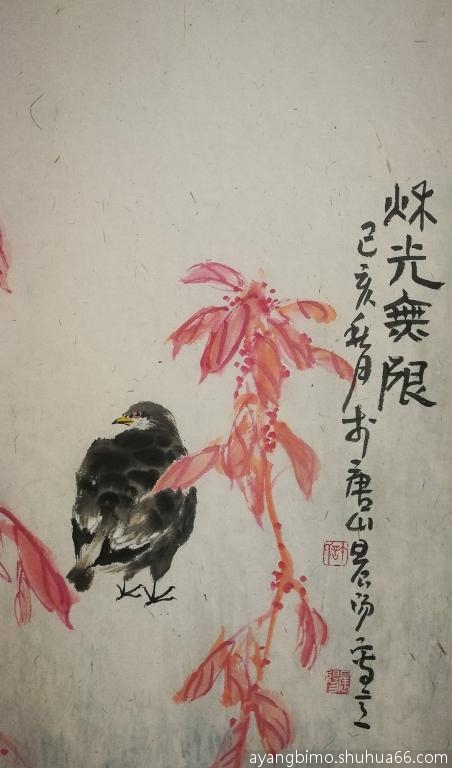 秌光無限
己亥秋月於唐山晨阳写之
ayangbimo.shuhua66.com